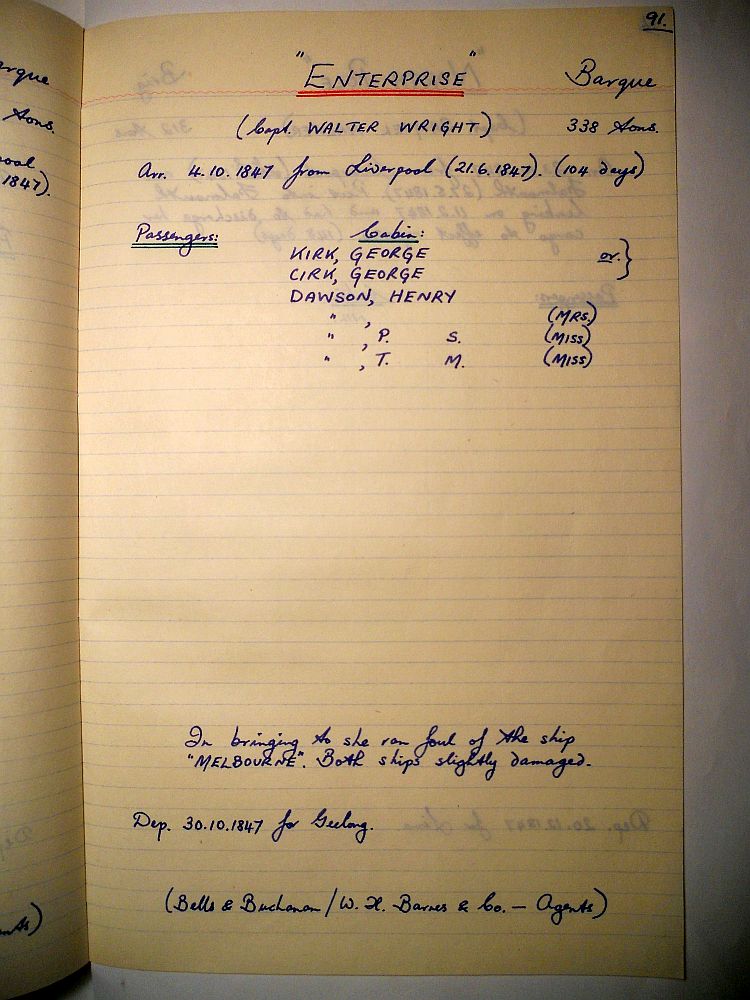 91.
"ENTERPRISE" Barque
(Capt. WALTER WRIGHT) 338 tons.
Arr. 4.10.1847 from Liverpool (21.6.1847). (104 days)
Passengers: Cabin:
KIRK, GEORGE or. }
CIRK, GEORGE
DAWSON, HENRY
" , (MRS.)
" , P. S. (MISS)
" , T. M. (MISS)
In bringing to she ran foul of the ship
"MELBOURNE". Both ships slightly damaged.
Dep. 30.10.1847 for Geelong.
(Bells & Buchanan / W. H. Barnes & Co. – Agents)
arque
tons.
pool
1847).
nts)